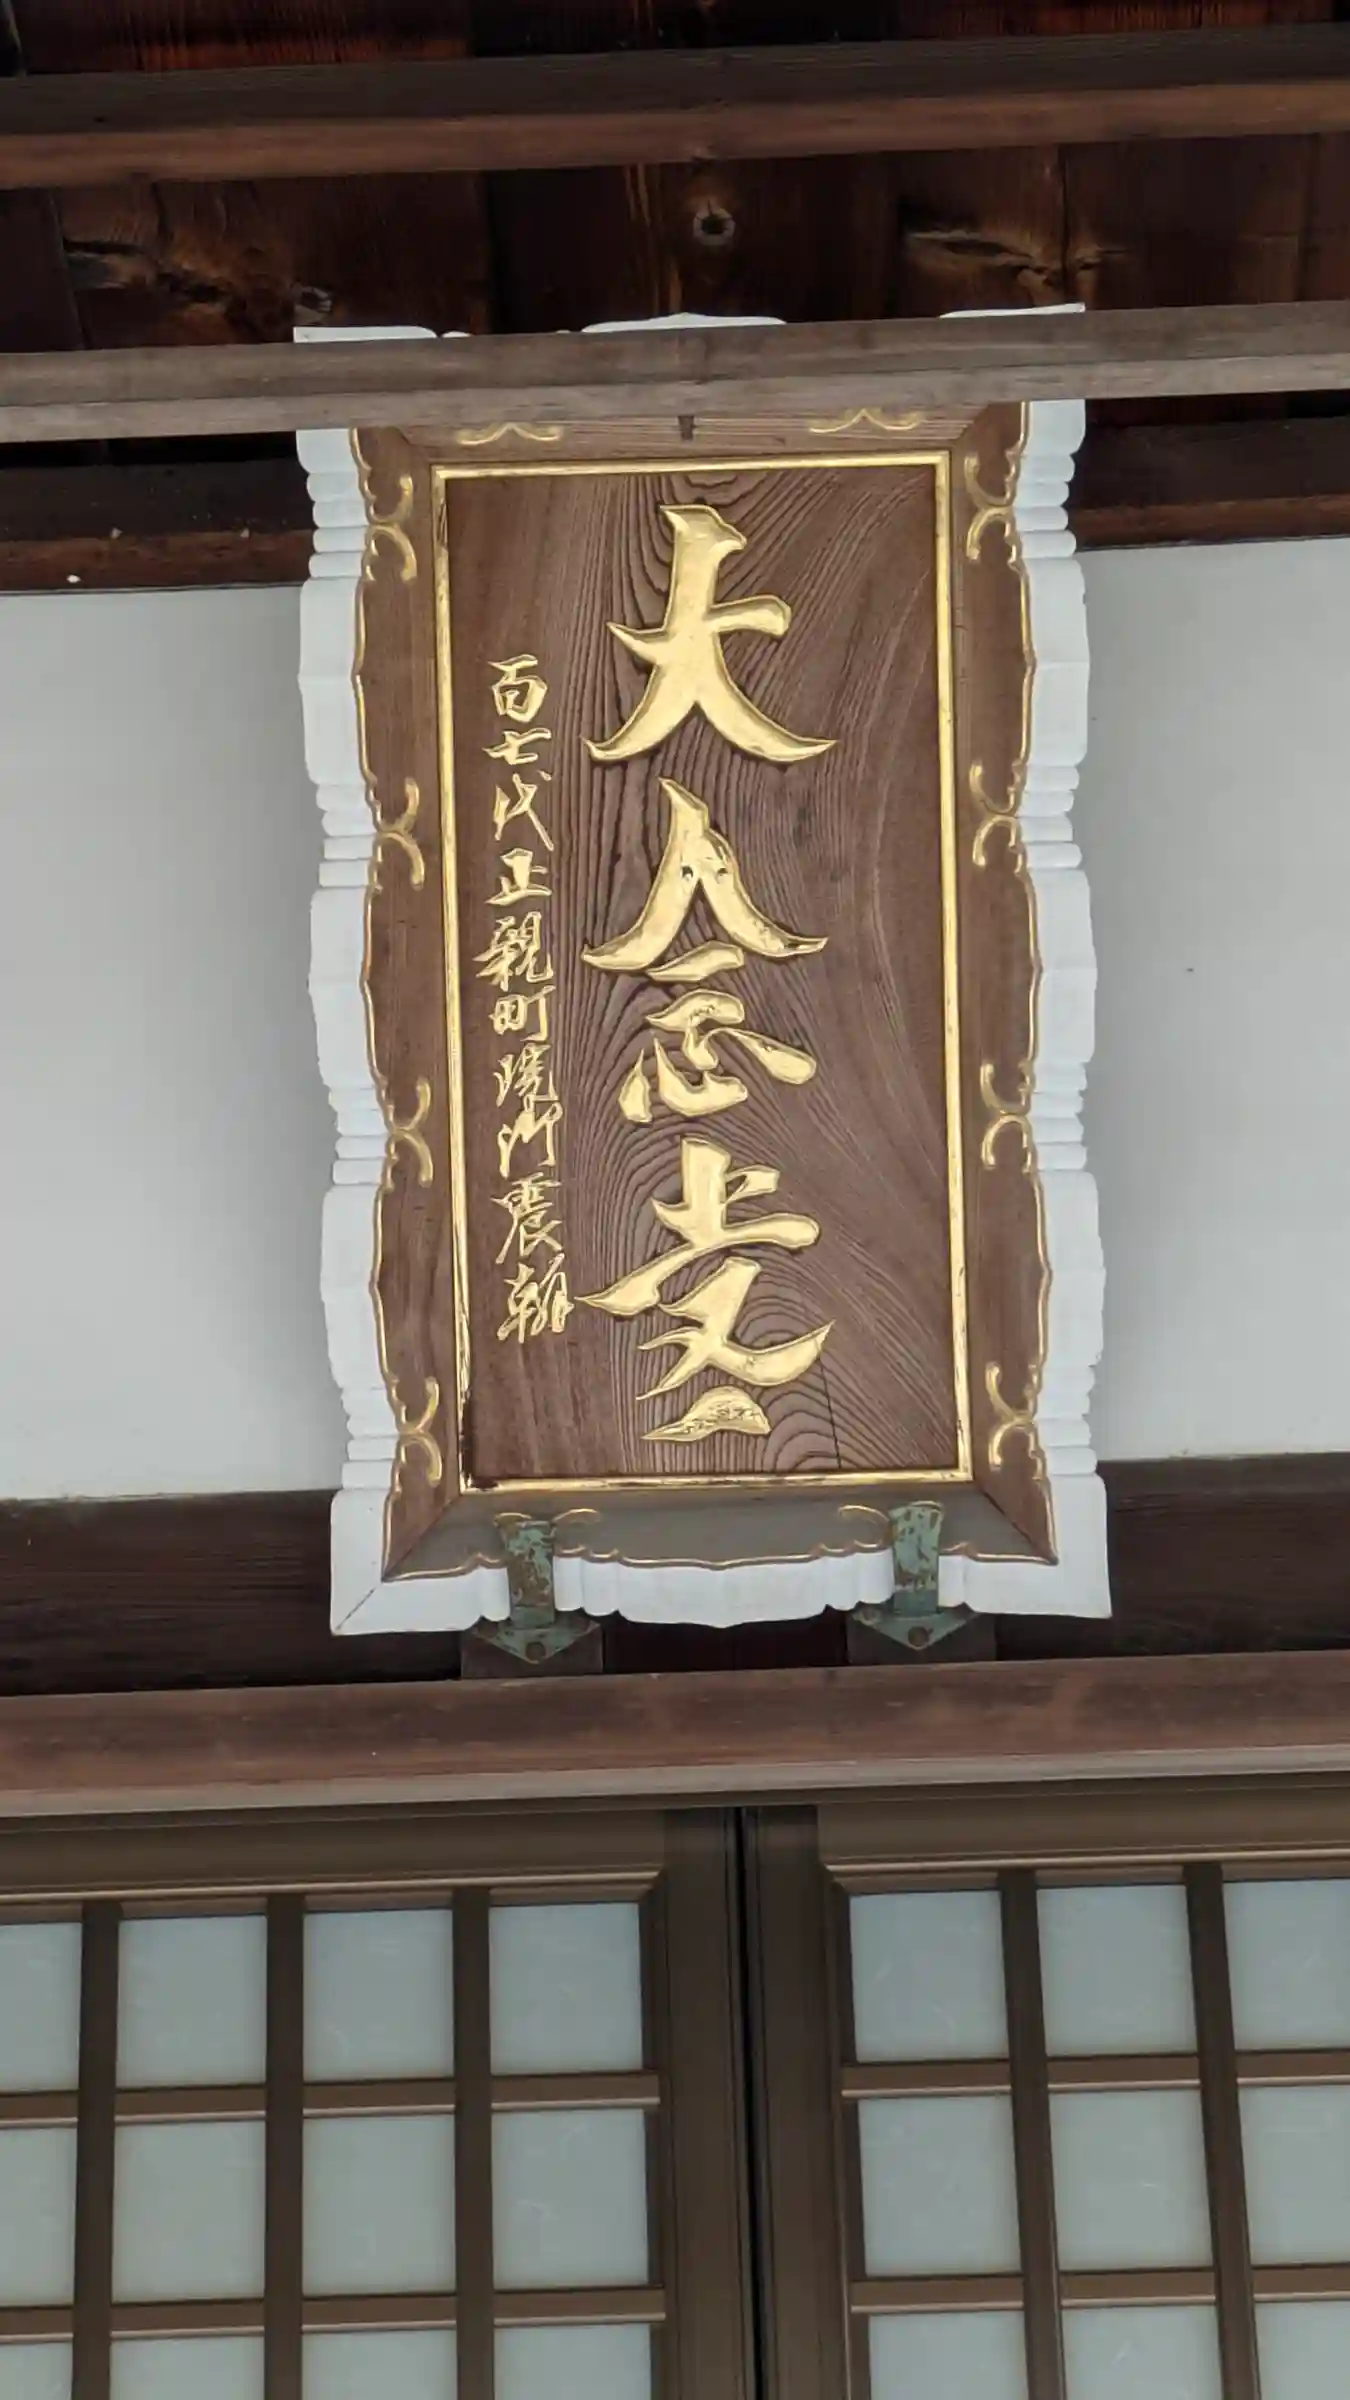 大念寺
百七代正親町院御震翰